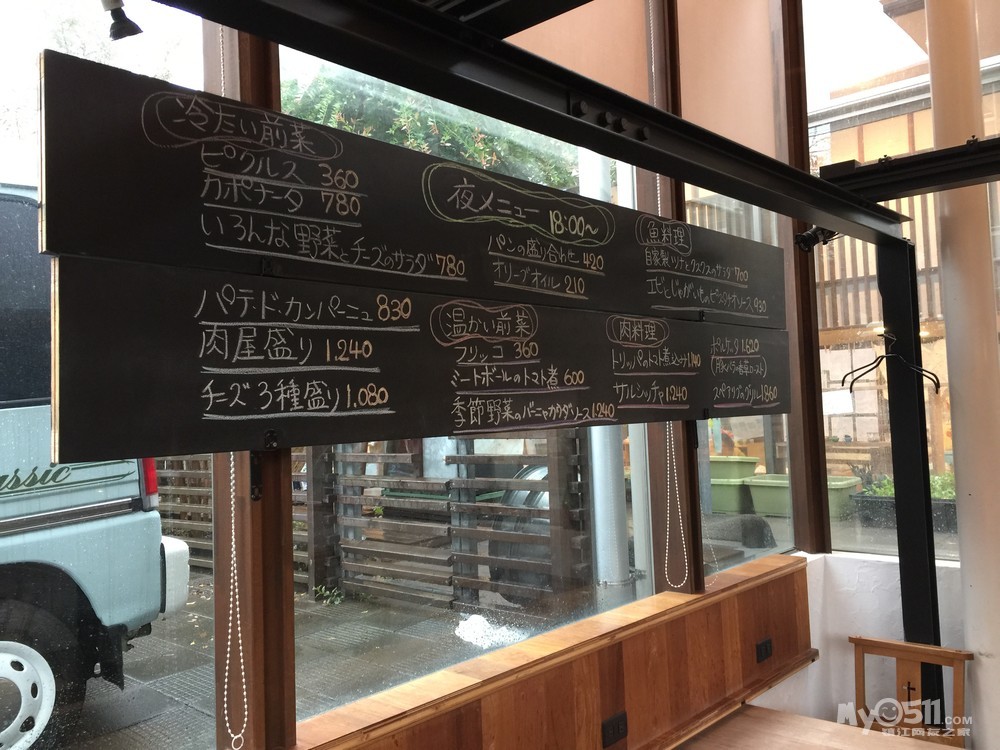 冷たい前菜
ピクルス 360
カポナータ 780
いろんな野菜とチーズのサラダ 780
パテ・ド・カンパーニュ 830
肉屋盛り 1.240
チーズ3種盛り 1.080
夜メニュー 18:00~
パンの盛り合わせ 420
オリーブオイル 210
温かい前菜
フリッコ 360
ミートボールのトマト煮 600
季節野菜のバーニャカウダソース 1.240
魚料理
自家製ツナとクスクスのサラダ 700
エビとじゃがいものピスタチオソース 930
肉料理
トリッパのトマト煮込み 1.140
サルシッチャ 1.240
ポルケッタ 1.620
スペアリブのグリル 1.860
assic
My0511.COM
镇江网友之家